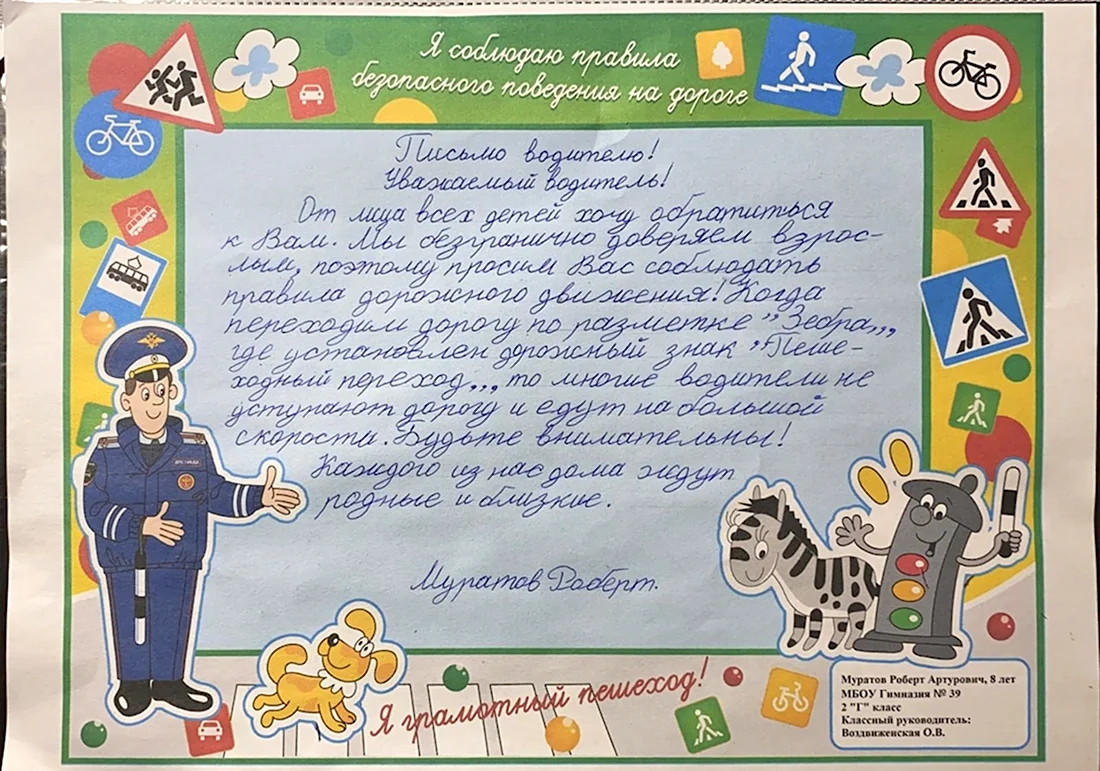 Я соблюдаю правила
безопасного поведения на дороге
Письмо водителю!
Уважаемый водитель!
От лица всех детей хочу обратиться
к Вам. Мы безгранично доверяем взрос-
лым, поэтому просим Вас соблюдать
правила дорожного движения! Когда
переходим дорогу по разметке "Зебра",
где установлен дорожный знак "Пеше-
ходный переход", то многие водители не
уступают дорогу и едут на большой
скорости. Будьте внимательны!
Каждого из нас дома ждут
родные и близкие.
Муратов Роберт.
Я грамотный пешеход!
Муратов Роберт Артурович, 8 лет
МБОУ Гимназия № 39
2 "Г" класс
Классный руководитель:
Воздвиженская О.В.